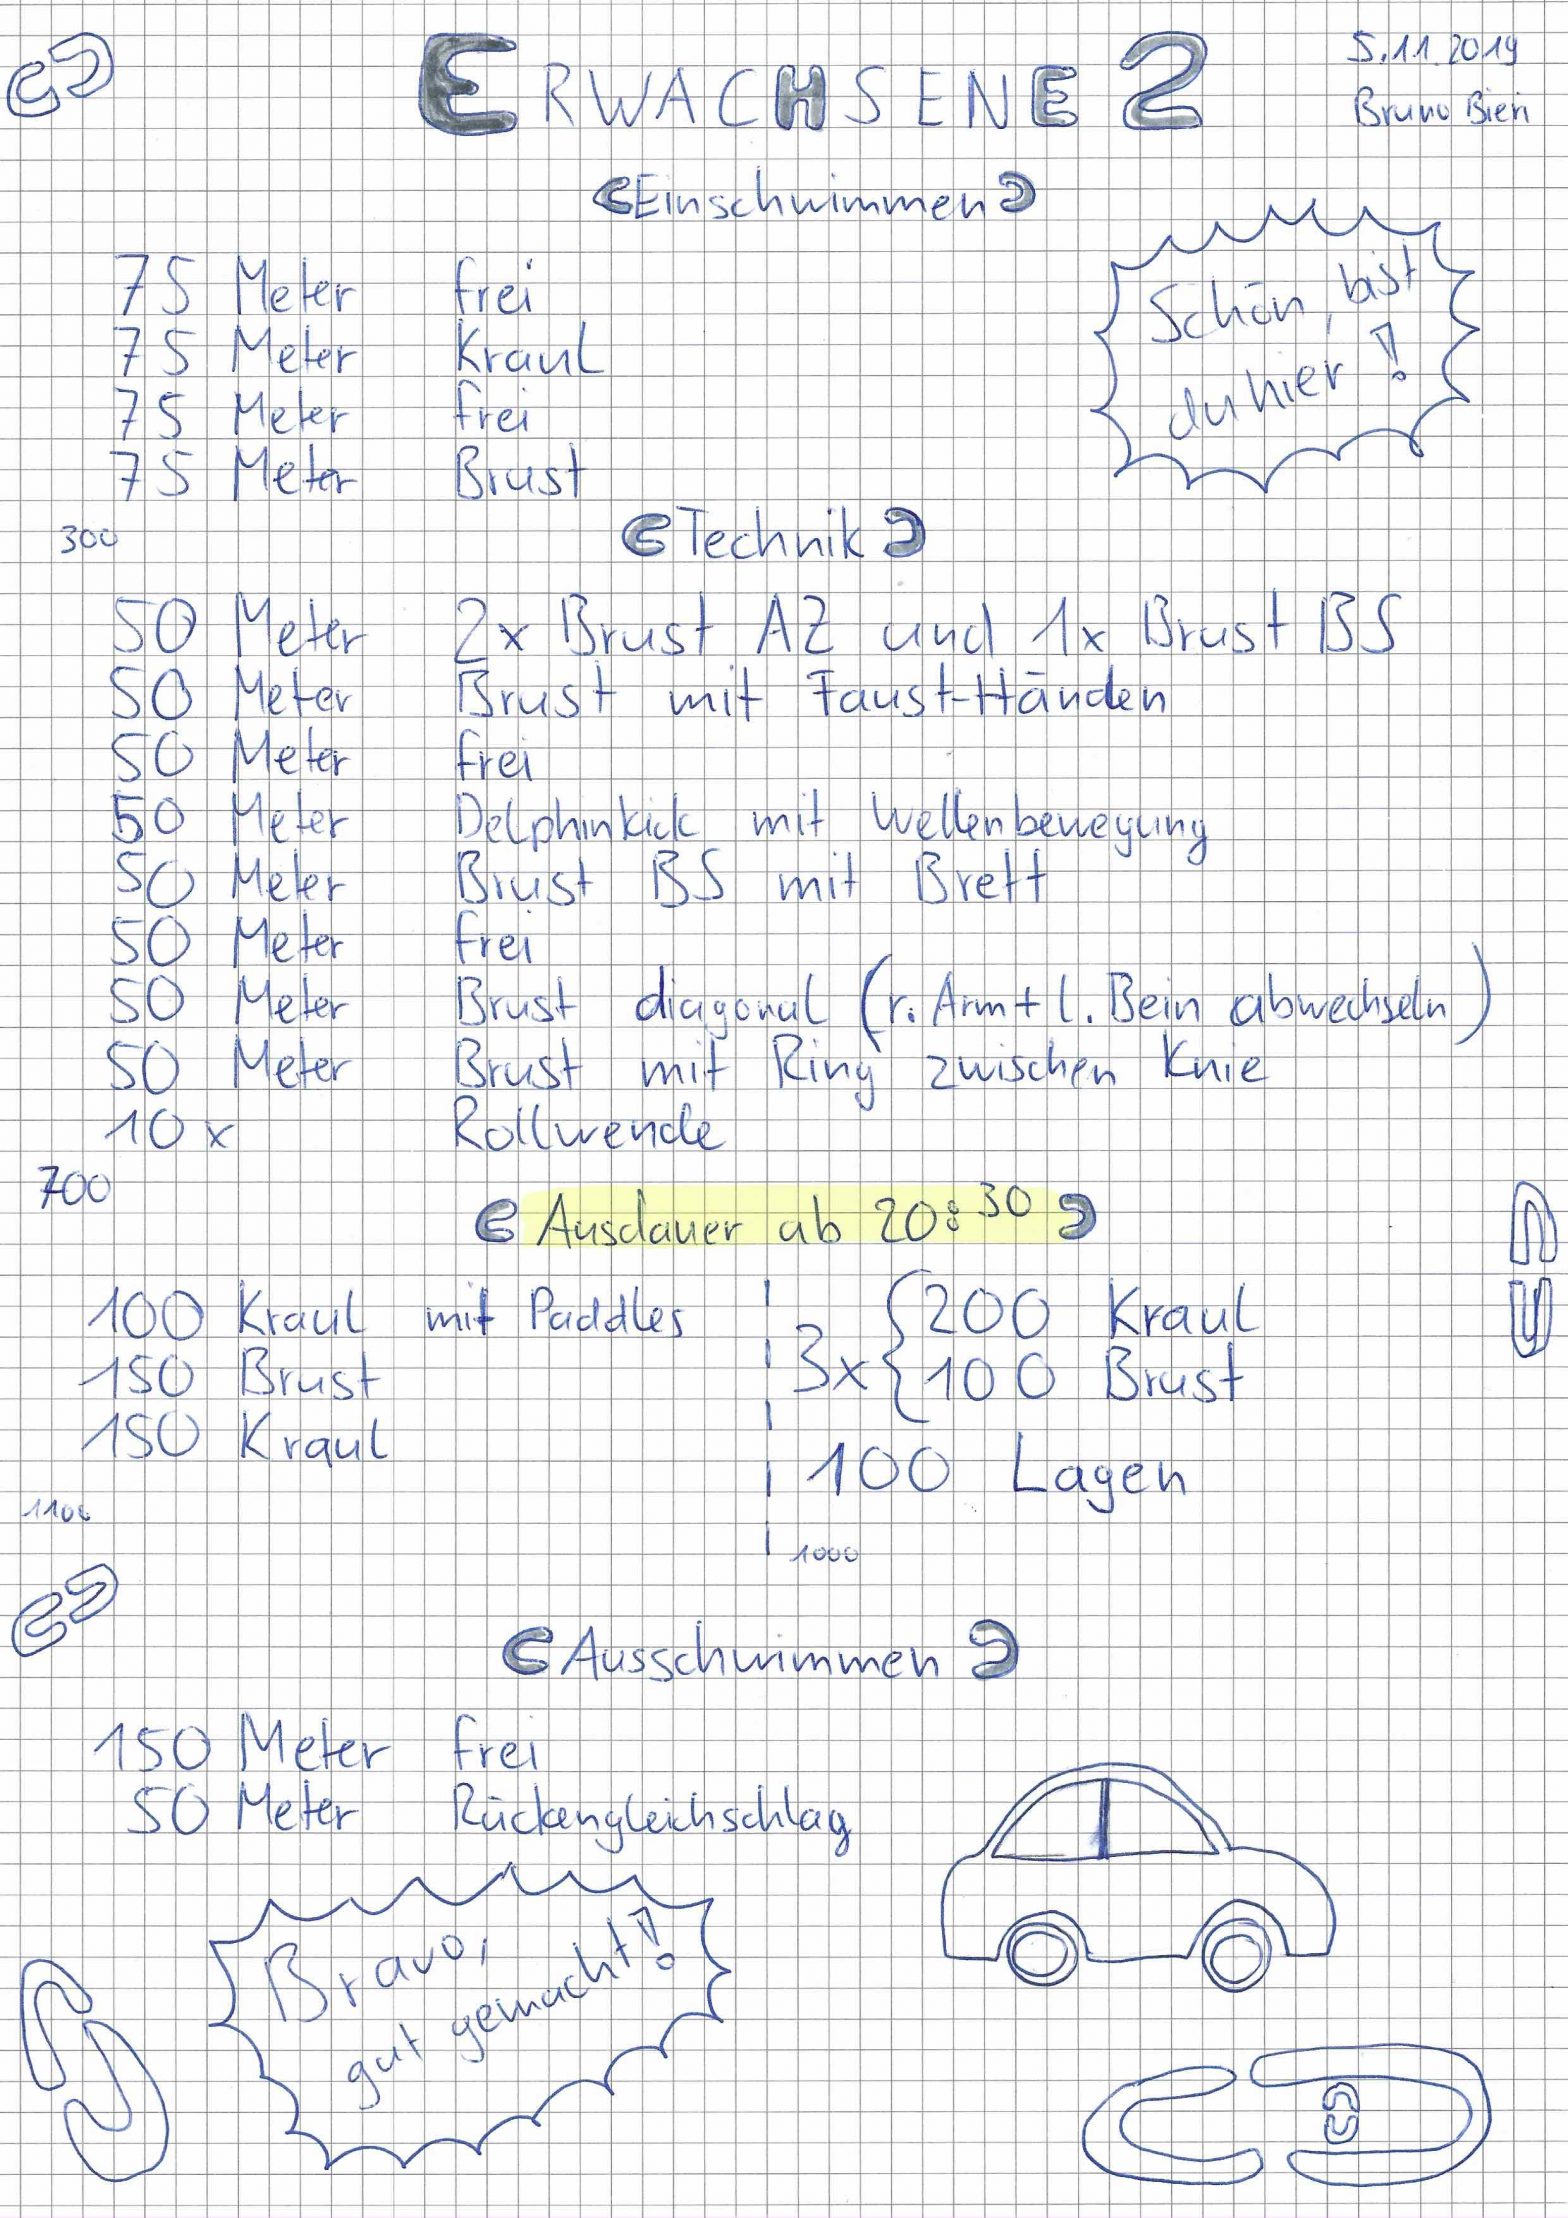 ERWACHSENE 2
5.11.2019
Bruno Bieri
Einschwimmen
75 Meter frei
75 Meter Kraul
75 Meter frei
75 Meter Brust
Schön, bist
du hier!
300
Technik
50 Meter 2x Brust AZ und 1x Brust BS
50 Meter Brust mit Faust-Händen
50 Meter frei
50 Meter Delphinkick mit Wellenbewegung
50 Meter Brust BS mit Brett
50 Meter frei
50 Meter Brust diagonal (r. Arm + l. Bein abwechseln)
50 Meter Brust mit Ring zwischen Knie
10x Rollwende
700
Ausdauer ab 20:30
100 Kraul mit Paddles
150 Brust
150 Kraul
1100
3x { 200 Kraul
100 Brust
100 Lagen
1000
Ausschwimmen
150 Meter frei
50 Meter Rückengleichschlag
Bravo,
gut gemacht!